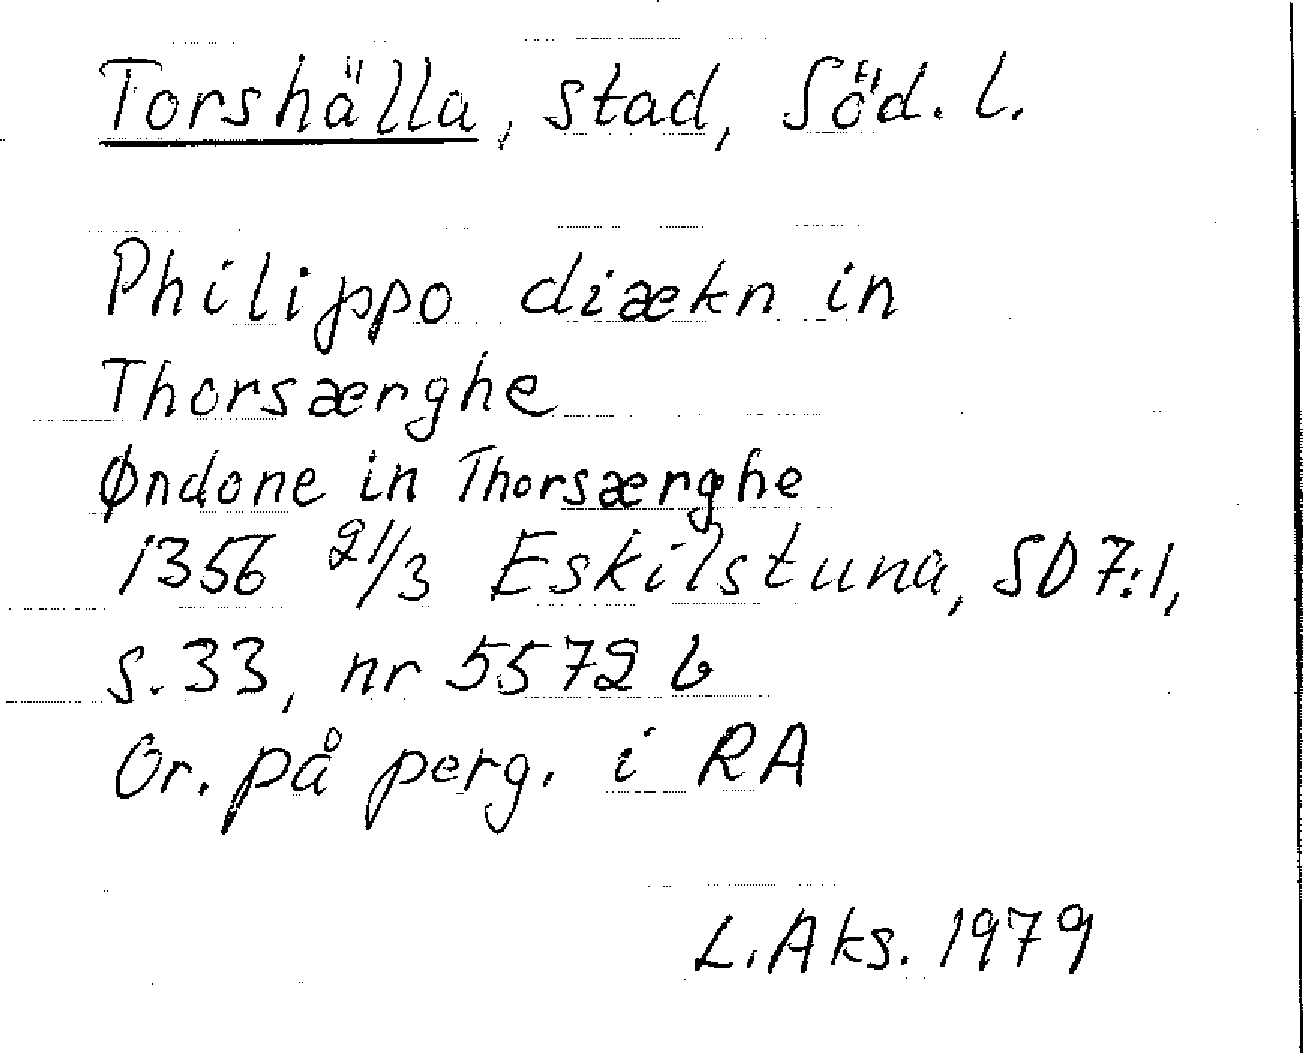 Torshälla, stad, Söd. l.
Philippo diækn in
Thorsærghe
Øndone in Thorsærghe
1356 21/3 Eskilstuna, SD 7:1,
s. 33, nr 5572 b
Or. på perg. i RA
L. Aks. 1979